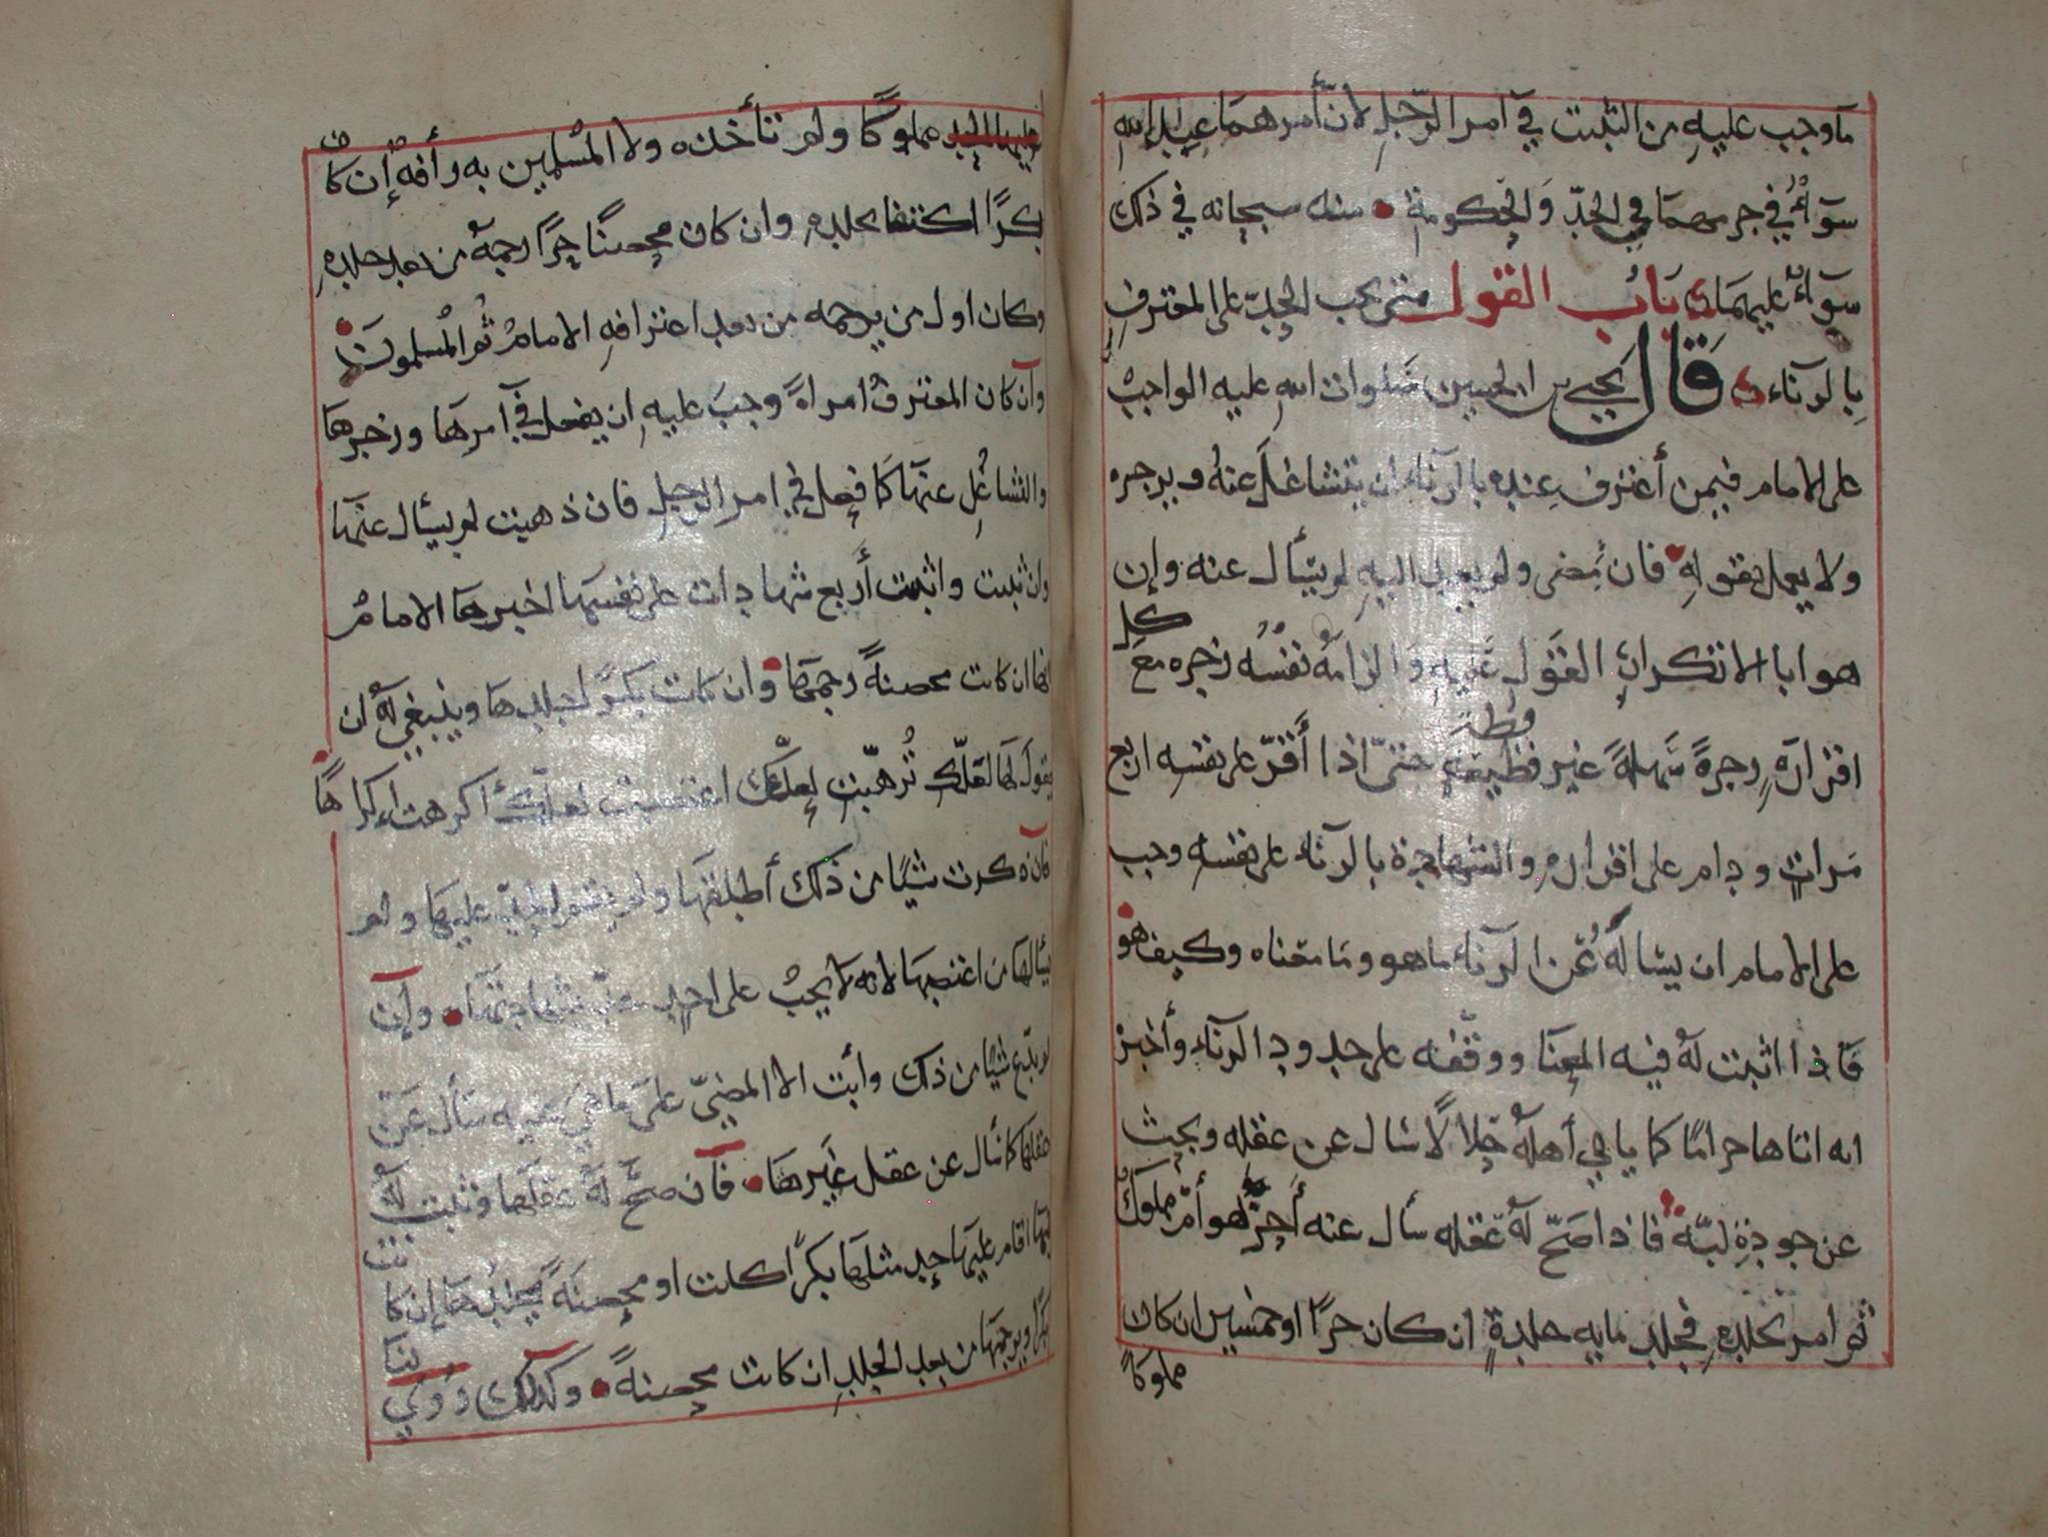 ما وجب عليه من التثبت في امر الرجل لأن أمرهما عند الله
سوآءٌ في جرمهما في الحد والحكومة منه سبحانه في ذلك
سوآءٌ عليهما باب القول متى يجب الحدّ على المعترف
بالزناء قال يحيى بن الحسين صلوات الله عليه الواجب
على الامام فيمن أعترف عنده بالزناء ان يتشاغل عنه ويزجره
ولا يعمل بقوله فان مضى ولم يعد اليه لم يسأل عنه وإن
هو ابا الا تكرار القول عليه والزامه نفسه زجره مع كل
اقراره زجرةً سهلةً غير فظيعة فظة حتى اذا أقرّ على نفسه اربع
مرات ودام على اقراره والشهادة بالزناء على نفسه وجب
على الامام ان يسأله عن الزناء ما هو وما معناه وكيف هو
فاذا اثبت له فيه المعنا ووقفه على حدود الزناء وأخبر
انه اتاها حراما كما ياتي أهله حلالاً سال عن عقله وبحث
عن جودة لبّه فاذا صحّ له عقله سأل عنه أحرّ هو أم مملوك
ثم امر بجلده فجلد مايه جلدةٍ ان كان حرًا او خمسين ان كان
مملوكاً
مملوكًا ولم تأخذه ولا المسلمين به رأفة إن كان
بكرًا اكتفا بجلده وان كان محصنًا حرًا رجمه من بعد جلده
وكان اول من يرجمه من بعد اعترافه الامام ثم المسلمون
وان كان المعترف امراة وجب عليه ان يفعل في امرها وزجرها
والتشاغل عنها كما فعل في امر الرجل فان ذهبت لم يسأل عنها
وان ثبتت واثبتت أربع شهادات على نفسها اخبرها الامام
انها ان كانت محصنةً رجمها وان كانت بكرًا جلدها وينبغي له ان
يقول لها لعلّك تُرهّبتِ لعلّك اغتصبت لعلّك أكرهت إكراهًا
فان ذكرت شيًا من ذلك أطلقها ولم يقم الحدّ عليها ولم
يسألها من اغتصبها لانه لا يجب على احد حدّ بشهادتها وإن
لم تدّع شيًا من ذلك وأبت الا المضيّ على ما هي عليه سأل عن
عقلها كما سأل عن عقل غيرها فان صحّ له عقلها وثبت له
لبها اقام عليها حد مثلها بكرًا كانت او محصنةً يجلدها إن كانت
بكرًا ويرجمها من بعد الجلد ان كانت محصنةً وكذلك روي
لنا